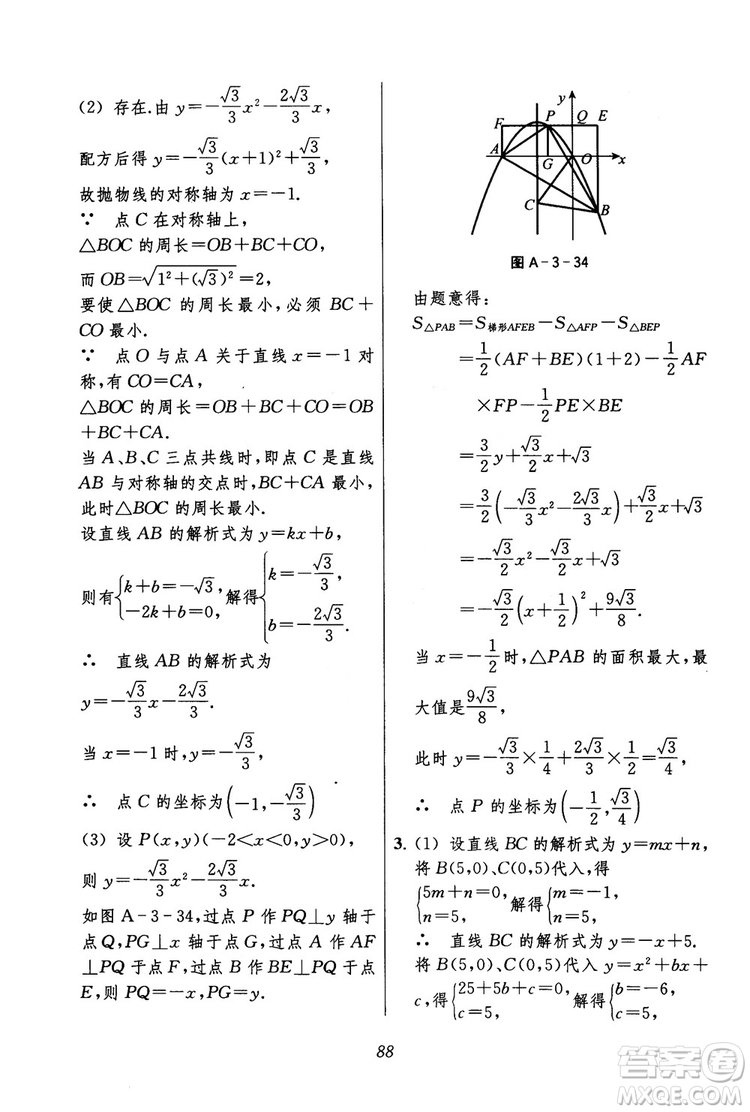 (2) 存在.由 y=-\frac{\sqrt{3}}{3}x²-\frac{2\sqrt{3}}{3}x,
配方后得 y=-\frac{\sqrt{3}}{3}(x+1)²+\frac{\sqrt{3}}{3},
故抛物线的对称轴为 x=-1.
∵ 点 C 在对称轴上,
△BOC 的周长=OB+BC+CO,
而 OB=\sqrt{1²+(\sqrt{3})²}=2,
要使△BOC 的周长最小,必须 BC+
CO 最小.
∵ 点 O 与点 A 关于直线 x=-1 对
称,有 CO=CA,
△BOC 的周长=OB+BC+CO=OB
+BC+CA.
当 A、B、C 三点共线时,即点 C 是直线
AB 与对称轴的交点时,BC+CA 最小,
此时△BOC 的周长最小.
设直线 AB 的解析式为 y=kx+b,
则有{k+b=-\sqrt{3}, -2k+b=0, 解得{k=-\frac{\sqrt{3}}{3}, b=-\frac{2\sqrt{3}}{3}.
∴ 直线 AB 的解析式为
y=-\frac{\sqrt{3}}{3}x-\frac{2\sqrt{3}}{3}.
当 x=-1 时,y=-\frac{\sqrt{3}}{3},
∴ 点 C 的坐标为(-1,-\frac{\sqrt{3}}{3})
(3) 设 P(x,y)(-2<x<0,y>0),
则 y=-\frac{\sqrt{3}}{3}x²-\frac{2\sqrt{3}}{3}x.
如图 A-3-34,过点 P 作 PQ⊥y 轴于
点 Q,PG⊥x 轴于点 G,过点 A 作 AF
⊥PQ 于点 F,过点 B 作 BE⊥PQ 于点
E,则 PQ=-x,PG=
y
F P Q E
A G O x
C B
图 A-3-34
由题意得:
S△PAB=S梯形AFEB-S△AFP-S△BEP
=\frac{1}{2}(AF+BE)(1+2)-\frac{1}{2}AF
×FP-\frac{1}{2}PE×BE
=\frac{3}{2}y+\frac{\sqrt{3}}{2}x+\sqrt{3}
=\frac{3}{2}(-\frac{\sqrt{3}}{3}x²-\frac{2\sqrt{3}}{3}x)+\frac{\sqrt{3}}{2}x+\sqrt{3}
=-\frac{\sqrt{3}}{2}x²-\frac{\sqrt{3}}{2}x+\sqrt{3}
=-\frac{\sqrt{3}}{2}(x+\frac{1}{2})²+\frac{9\sqrt{3}}{8}.
当 x=-\frac{1}{2}时,△PAB 的面积最大,最
大值是\frac{9\sqrt{3}}{8},
此时 y=-\frac{\sqrt{3}}{3}×\frac{1}{4}+\frac{2\sqrt{3}}{3}×\frac{1}{2}=\frac{\sqrt{3}}{4},
∴ 点 P 的坐标为(-\frac{1}{2},\frac{\sqrt{3}}{4})
3. (1) 设直线 BC 的解析式为 y=mx+n,
将 B(5,0)、C(0,5)代入,得
{5m+n=0, n=5, 解得{m=-1, n=5,
∴ 直线 BC 的解析式为 y=-x+5.
将 B(5,0)、C(0,5)代入 y=x²+bx+
c,得{25+5b+c=0, c=5, 解得{b=-6, c=5,
88